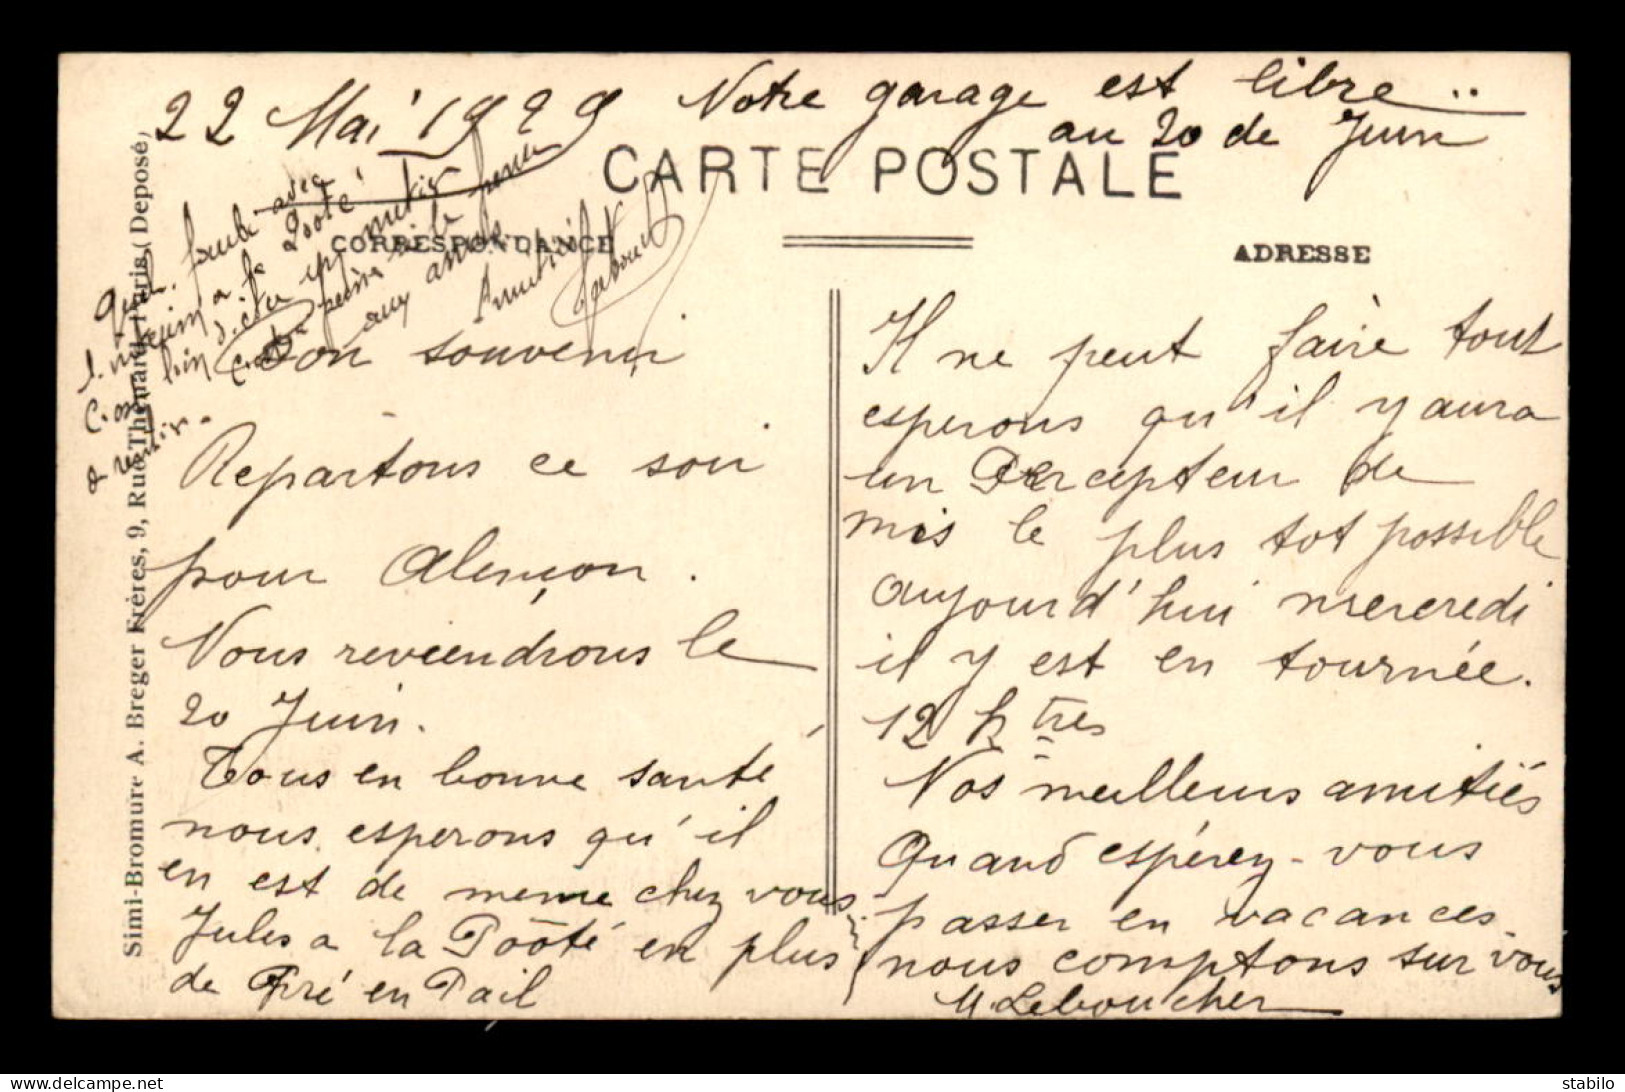 22 Mai 1929
Notre garage est libre..
au 20 de Juin
CARTE POSTALE
CORRESPONDANCE
ADRESSE
avec
la Pooté
Bon souvenir
Repartons ce soir
pour Alençon.
Nous reviendrons le
20 Juin.
Tous en bonne santé
nous esperons qu'il
en est de meme chez vous
Jules a la Poôté en plus
de Pré en Pail
Il ne peut faire tout
esperons qu'il y aura
un Percepteur de
mis le plus tot possible
aujourd'hui mercredi
il y est en tournée.
12 h tres
Nos meilleurs amitiés
Quand espérez-vous
passer en vacances
nous comptons sur vous
M Leboucher
Simi-Bromure A. Breger Frères, 9, Rue Thénard, Paris (Déposé)
stabilo